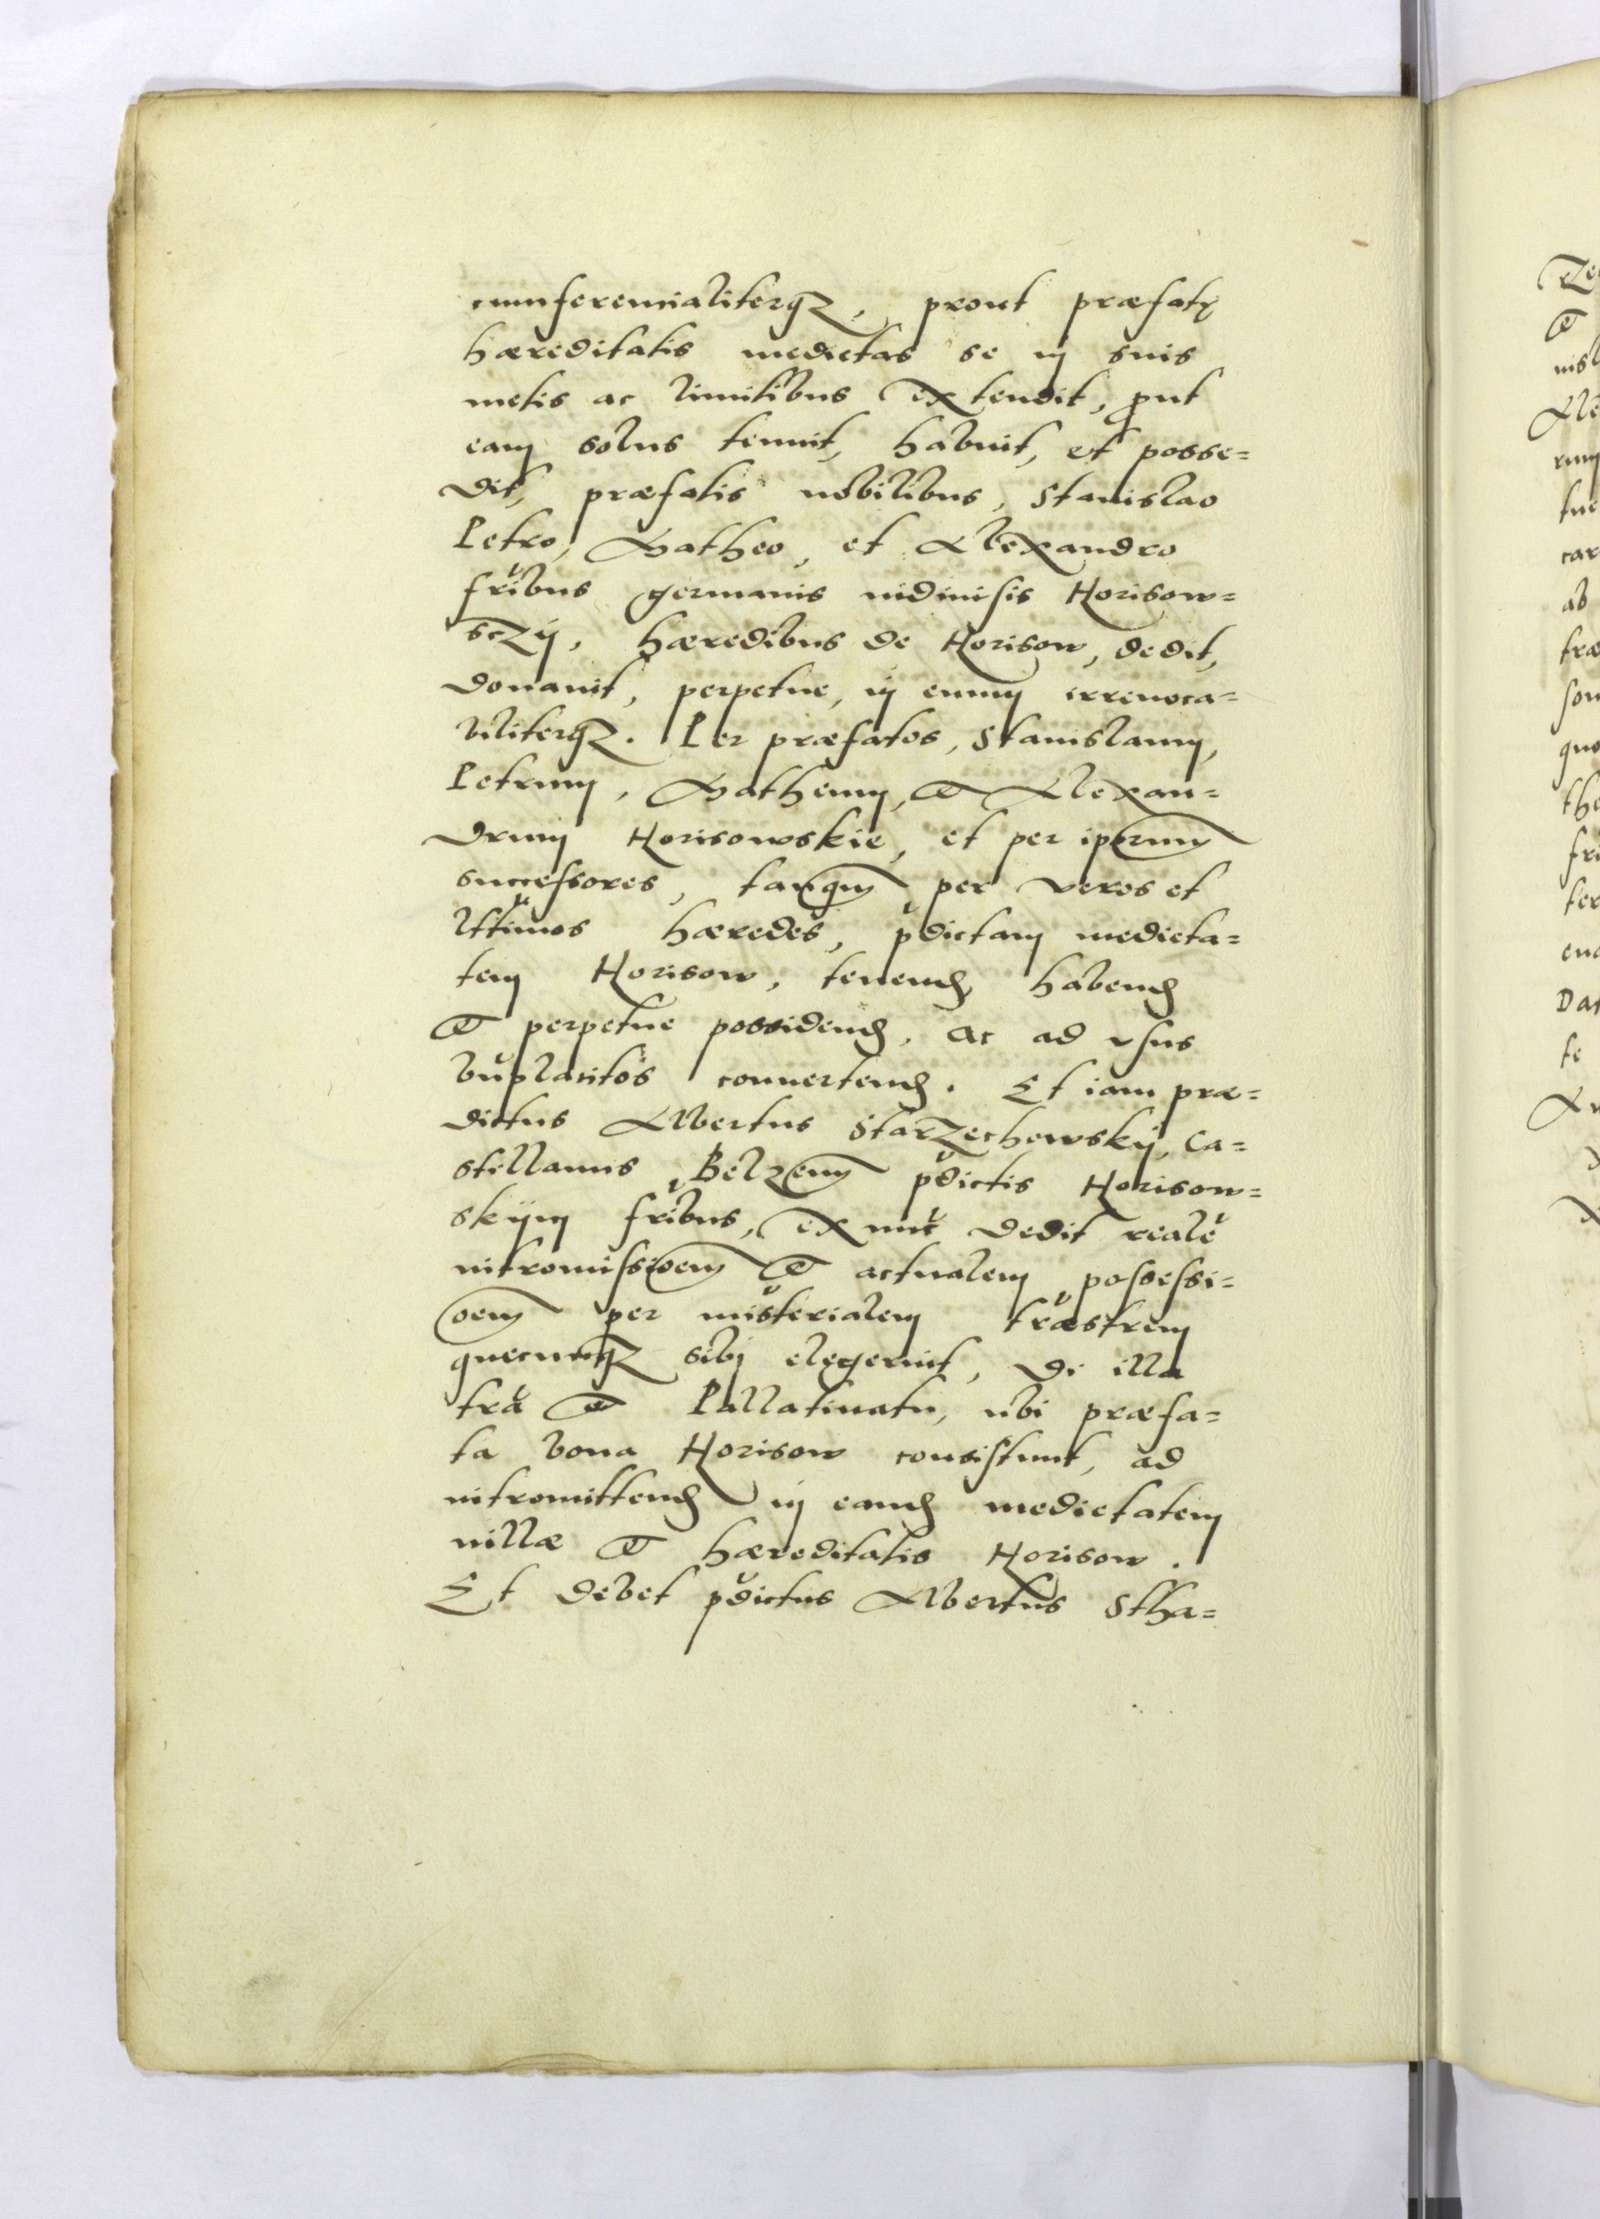 cumferencialiterqз, prout præfatę
hæreditatis medietas se in suis
metis ac limitibus extendit, ꝓut
eam solus tenuit, habuit, et posse=
dit, præfatis nobilibus, Stanislao
Petro, Matheo, et Alexandro
fribus germanis indiuisis Horisow=
sczÿ, hæredibus de Horisow, dedit,
donauit, perpetue, in euum irreuoca=
biliterqз. Per præfatos, Stanislaum,
Petrum, Matheum, et Alexan=
drum Horisowskie, et per iporum
successores, tanqm per veros et
lttimos hæredes, pdictam medieta=
tem Horisow, tenend, habend
et perpetue possidend, ac ad vsus
buplacitos conuertend. Et iam præ=
dictus Albertus Starzechowskÿ, Ca=
stellanus Belzem pdictis Horisow=
skÿm fribus, ex nuc dedit reale
intromissioem et actualem possessi=
oem per misterialem træstrem
quecunqз sibi elegerint, de illa
tra et Pallatinatu, ubi præfa=
ta bona Horisow consistunt, ad
intromittend in eand medietatem
villæ et hæreditatis Horisow.
Et debet pdictus Albertus Stha=